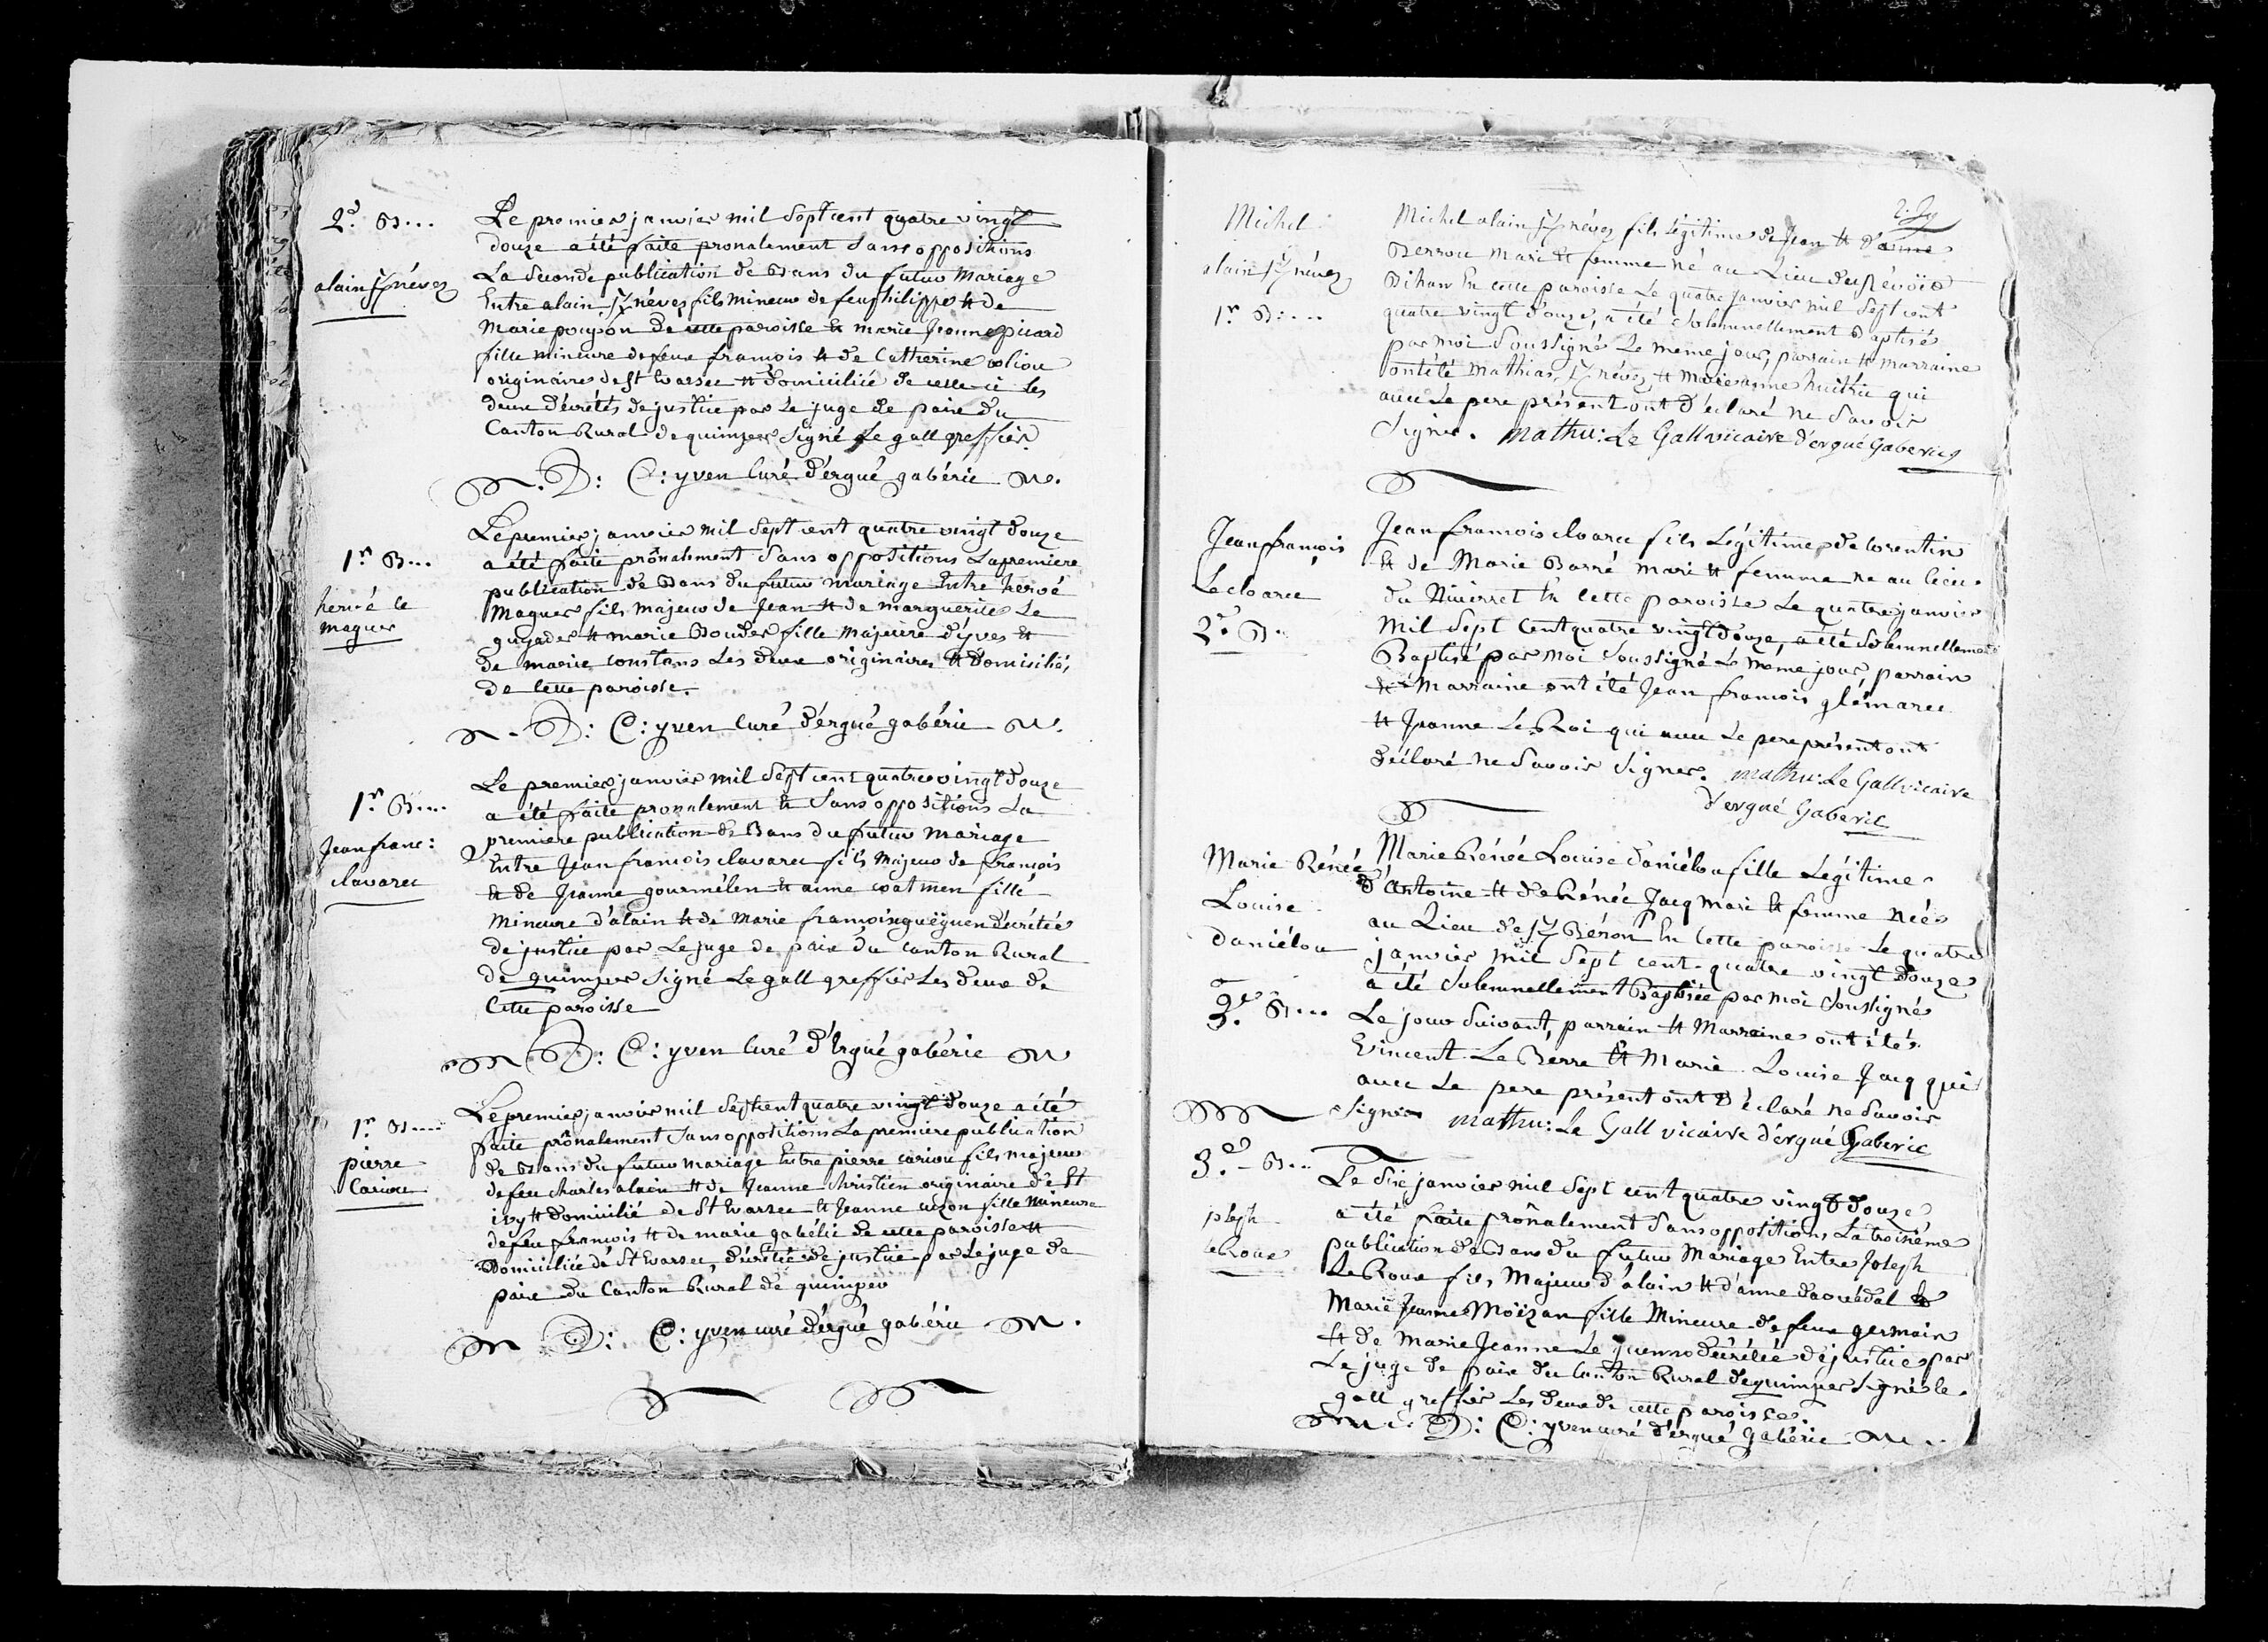 2.d B...
alain K/névez
Le premier janvier mil Septcent quatre vingt
douze a été faite pronalement Sans oppositions
La Seconde publication de Bans du futur Mariage
Entre alain K/névez fils mineur de feu philippe et de
Marie poupon de cette paroisse et marie Jeanne picard
fille mineure de feu francois et de Catherine coliou
originaire de St Evarzec et domiciliée de celle-ci Les
deux décrétés de justice par Le juge de paix du
Canton Rural de quimper Signé Le gall greffier.
D: C: yven Curé d'érgué gabéric
1.r B...
hervé le
maguer
Le premier janvier mil Sept cent quatre vingt douze
a été faite prônalement Sans oppositions La premiere
publication de Bans du futur mariage Entre hervé
Maguer fils majeur de Jean et de marguerite Le
guyader et marie Bouder fille Majeure d'yves et
de marie constans Les deux originaires et domiciliés
de Cette paroisse.
D: C: yven Curé d'érgué gabéric
1.r B...
Jean franc:
clavarec
Le premier janvier mil Sept cent quatre vingt douze
a été faite pronalement et Sans oppositions La
premiere publication de Bans du futur Mariage
Entre Jean francois clavarec fils Majeur de francois
et de Jeanne gourmélen et anne coatmen fille
Mineure d'alain et de Marie francoise guéguen décrétée
de justice par Le juge de paix du canton Rural
de quimper Signé Le gall greffier Les deux de
Cette paroisse
D: C: yven Curé d'Ergué gabéric
1.r B....
pierre
Cariou
Le premier janvier mil Septcent quatre vingt douze a été
faite prônalement Sans oppositions La premiere publication
de Bans du futur mariage Entre pierre cariou fils majeur
de feu charles alain et de Jeanne christien originaire de St
ivy et domicilié de St Evarzec et Jeanne cuzon fille Mineure
de feu francois et de marie gabélic de cette paroisse et
Domiciliée de St Evarzec, décrétée de justice par Le juge de
paix du Canton Rural de quimper
D: C: yven curé d'érgué gabéric
Michel
alain K/névez
1.r B....
Michel alain K/névez fils Légitime de Jean et d'anne
Berrou Mari et femme né au Lieu
Bihan En cette paroisse Le quatre Janvier mil Sept cent
quatre vingt douze, a été Solemnellement Baptisé
par moi Soussigné Le meme jour, parrain et marraine
ont été Mathias K/névez et Marie anne huitric qui
avec Le pere présent ont d'éclaré ne Savoir
Signer. Mathu: Le Gall vicaire d'ergué Gaberic
Jean françois
Le cloarec
2.e B.
Jean francois cloarec fils Légitime de Corentin
et de Marie Barré mari et femme né au Lieu
du En Cette paroisse Le quatre janvier
Mil Sept Cent quatre vingt douze, a été Solemnellement
Baptisé par moi Soussigné Le meme jour, parrain
et Marraine ont été Jean francois glémarec
et Jeanne Le Roi qui avec Le pere présent ont
déclaré ne Savoir Signer. Mathu: Le Gall vicaire
d'ergué Gaberic
Marie Rénée
Louise
daniélou
3.e B...
Marie Rénée Louise daniélou fille Légitime
d'Antoine et de Rénée Jacq Mari et femme née
au Lieu de K/ En Cette paroisse Le quatre
janvier mil Sept cent quatre vingt douze
a été Solemnellement Baptisée par moi Soussigné
Le jour Suivant, parrain et Marraine ont été
Vincent Le Berre et Marie Louise Jacq qui
avec Le pere présent ont déclaré ne Savoir
Signer Mathu: Le Gall vicaire d'ergué Gaberic
3.e B...
jsleph
le Roux
Le Six janvier mil Sept cent quatre vingt douze
a été faite prônalement Sans oppositions La troisième
publication de Bans du futur Mariage Entre Joseph
Le Roux fils Majeur d'alain et d'anne et
Marie Jeanne Moïzan fille Mineure de feu germain
et de Marie Jeanne Le décrétée de justice par
Le juge de paix du Canton Rural de quimper Signé le
gall greffier Les deux de cette paroisse.
D: C: yven curé d'érgué gabéric